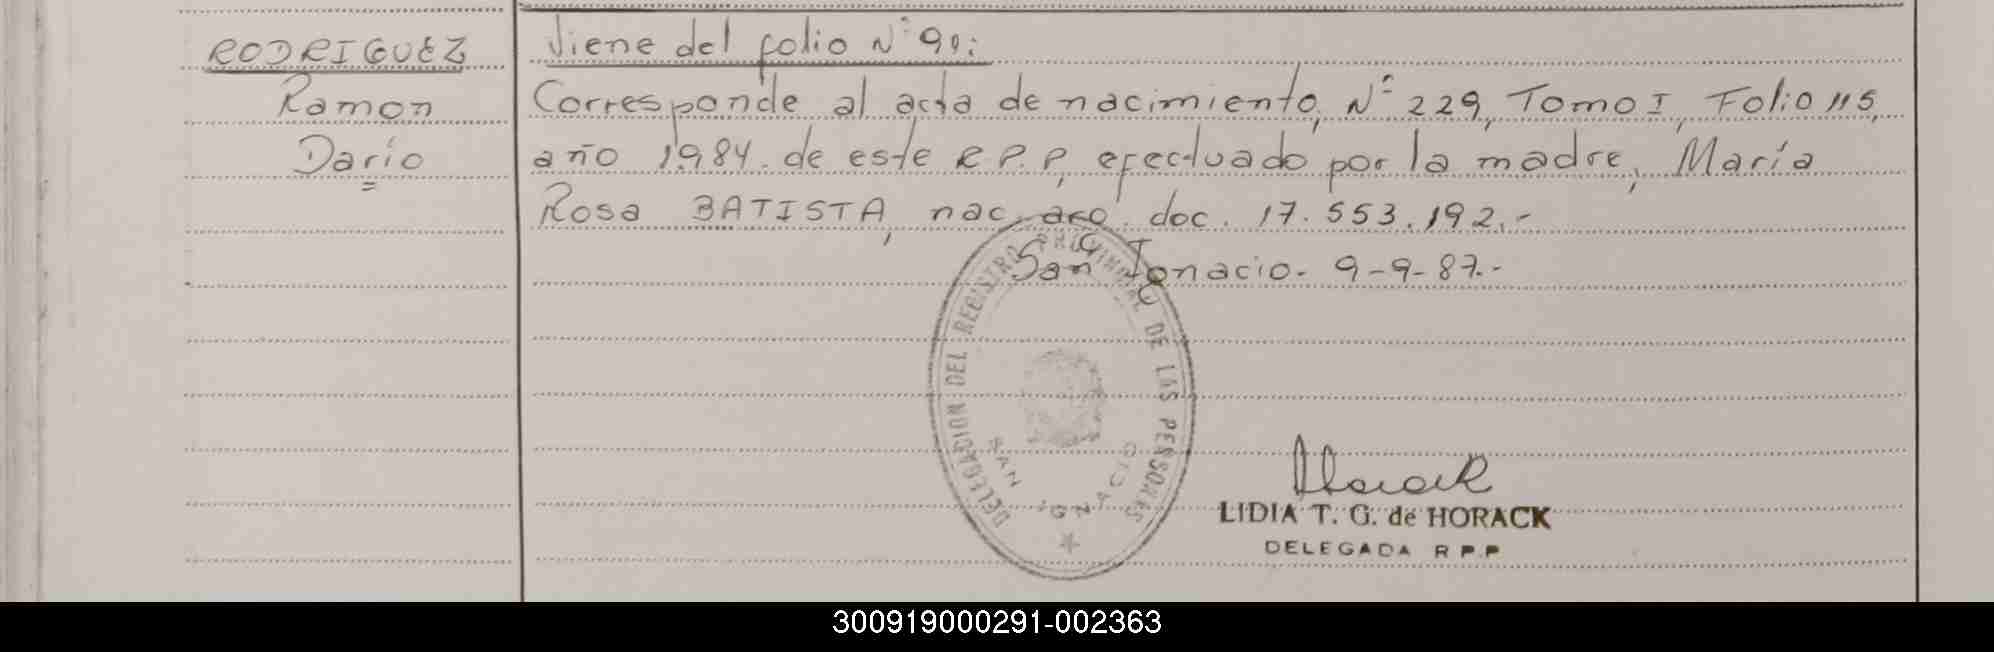 RODRIGUEZ
Ramon
Darío
Viene del folio N° 90:
Corresponde al acta de nacimiento, N° 229, Tomo I, Folio 115,
año 1.984. de este R.P.P, efectuado por la madre, María
Rosa BATISTA, nac. arg. doc. 17.553.192.-
San Ignacio. 9-9-87.-
DELEGACION DEL REGISTRO PROVINCIAL DE LAS PERSONAS
SAN IGNACIO
Horack
LIDIA T. G. de HORACK
DELEGADA R P.P
300919000291-002363